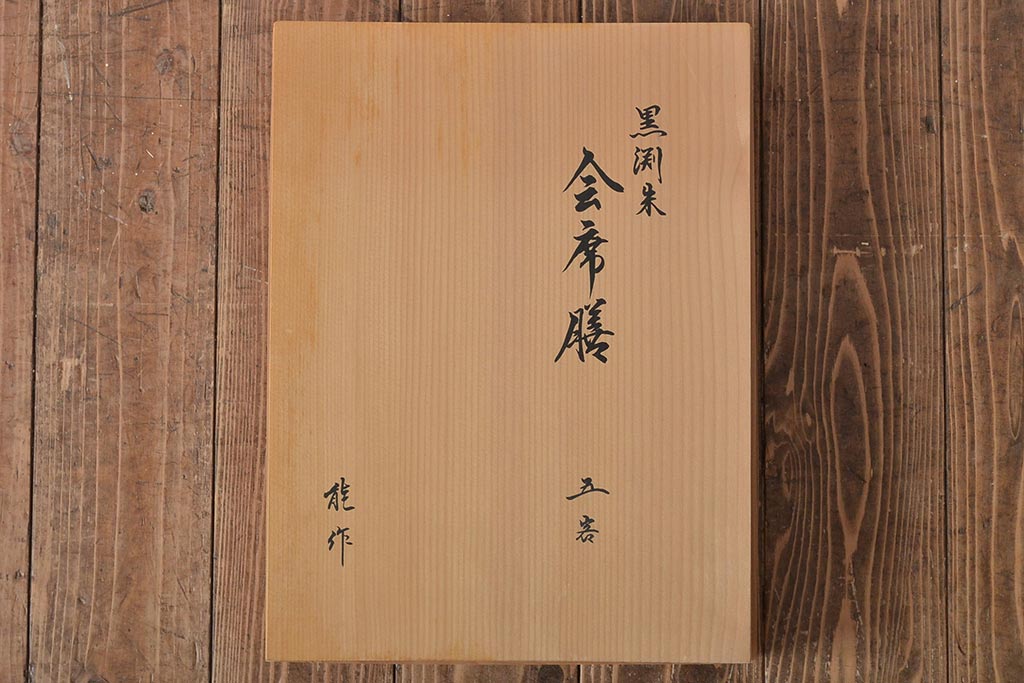 黒渕朱
会席膳 五客
能作